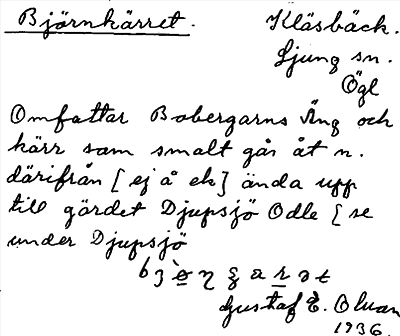 Björnkärret. Kläsbäck.
Ljung sn.
Ögl
Omfattar Bobergarns Äng och
kärr som smalt går åt n.
därifrån [ej å ek] ända upp
till gärdet Djupsjö Odle [se
under Djupsjö
Gustaf E. Oluan
1936.